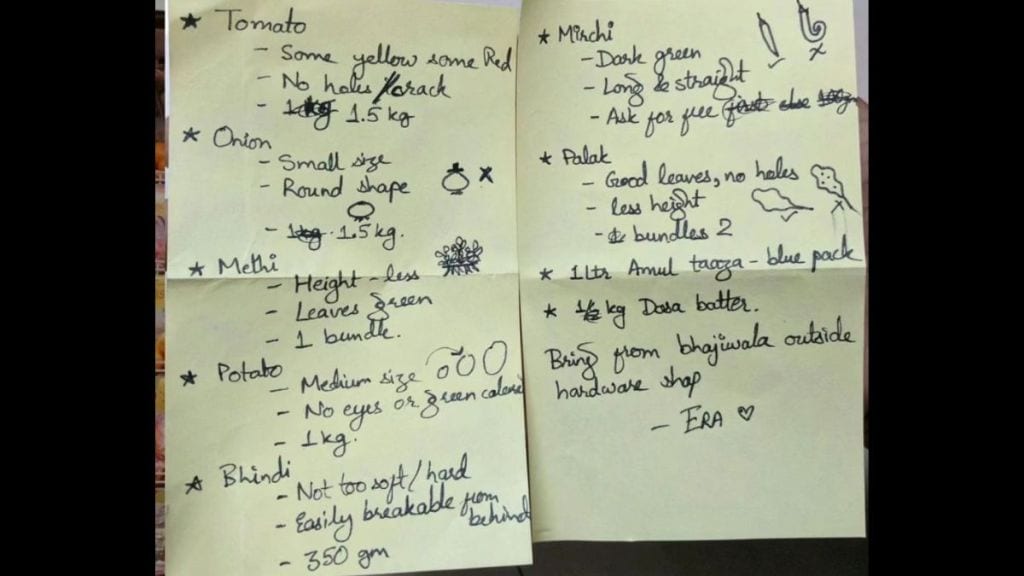 * Tomato
- Some yellow some Red
- No holes/crack
- 1.5 kg
* Onion
- Small size
- Round shape
- 1kg 1.5 kg.
* Methi
- Height - less
- Leaves green
- 1 bundle.
* Potato
- Medium size
- No eyes or green
- 1 kg.
* Bhindi
- Not too soft/hard
- Easily breakable from
behind
- 350 gm
* Mirchi
- Dark green
- Long & straight
- Ask for free
* Palak
- Good leaves, no holes
- less height
- bundles 2
* 1 ltr Amul taaza - blue pack
* 1/2 kg Dosa batter.
Bring from bhajiwala outside
hardware shop
- ERA ♡